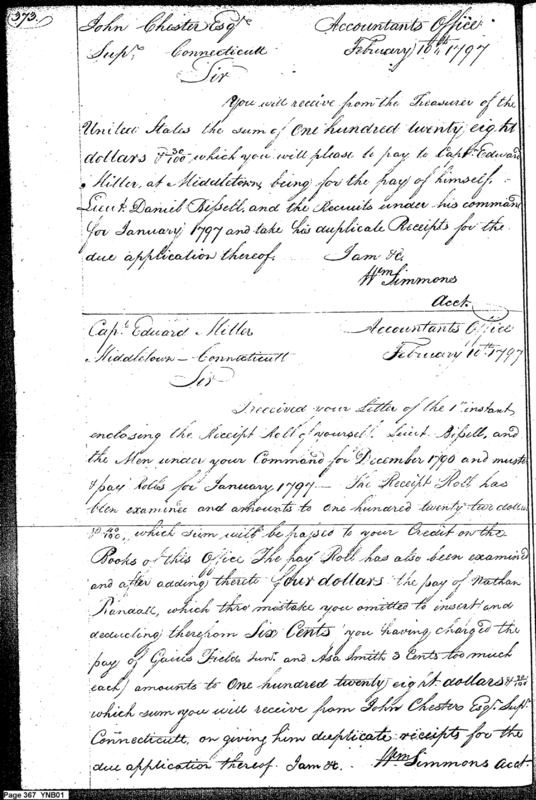 373.
John Chester Esqre Accountants Office
Supr. Connecticutt February 10th, 1797
Sir
You will receive from the Treasurer of the
United States the sum of One hundred twenty eight
dollars & 30/100 which you will please to pay to Capt. Edward
Miller, at Middletown, being for the pay of himself,
Lieut. Daniel Bissell, and the Recruits under his command
for January 1797 and take his duplicate Receipts for the
due application thereof. I am &c.
Wm Simmons
Acct.
Capt. Edward Miller Accountants Office
Middletown - Connecticutt February 10th 1797
Sir
I received your Letter of the 1st instant
enclosing the Receipt Roll of yourself, Lieut. Bissell, and
the Men under your Command for December 1796 and muster
& pay Rolls for January 1797 - The Receipt Roll has
been examined and amounts to one hundred twenty two dollars
40/100, which sum will be passed to your Credit on the
Books of this Office The pay Roll has also been examined
and after adding thereto four dollars the pay of Nathan
Randall, which thro' mistake you omitted to insert and
deducting therefrom Six Cents you having charged the
pay of Gaius Fields Junr. and Asa Smith 3 Cents too much
each, amounts to One hundred twenty eight dollars & 30/100
which sum you will receive from John Chester Esqr. Supr.
Connecticutt, on giving him duplicate receipts for the
due application thereof. I am &c. Wm Simmons Acct
Page 367 YNB01